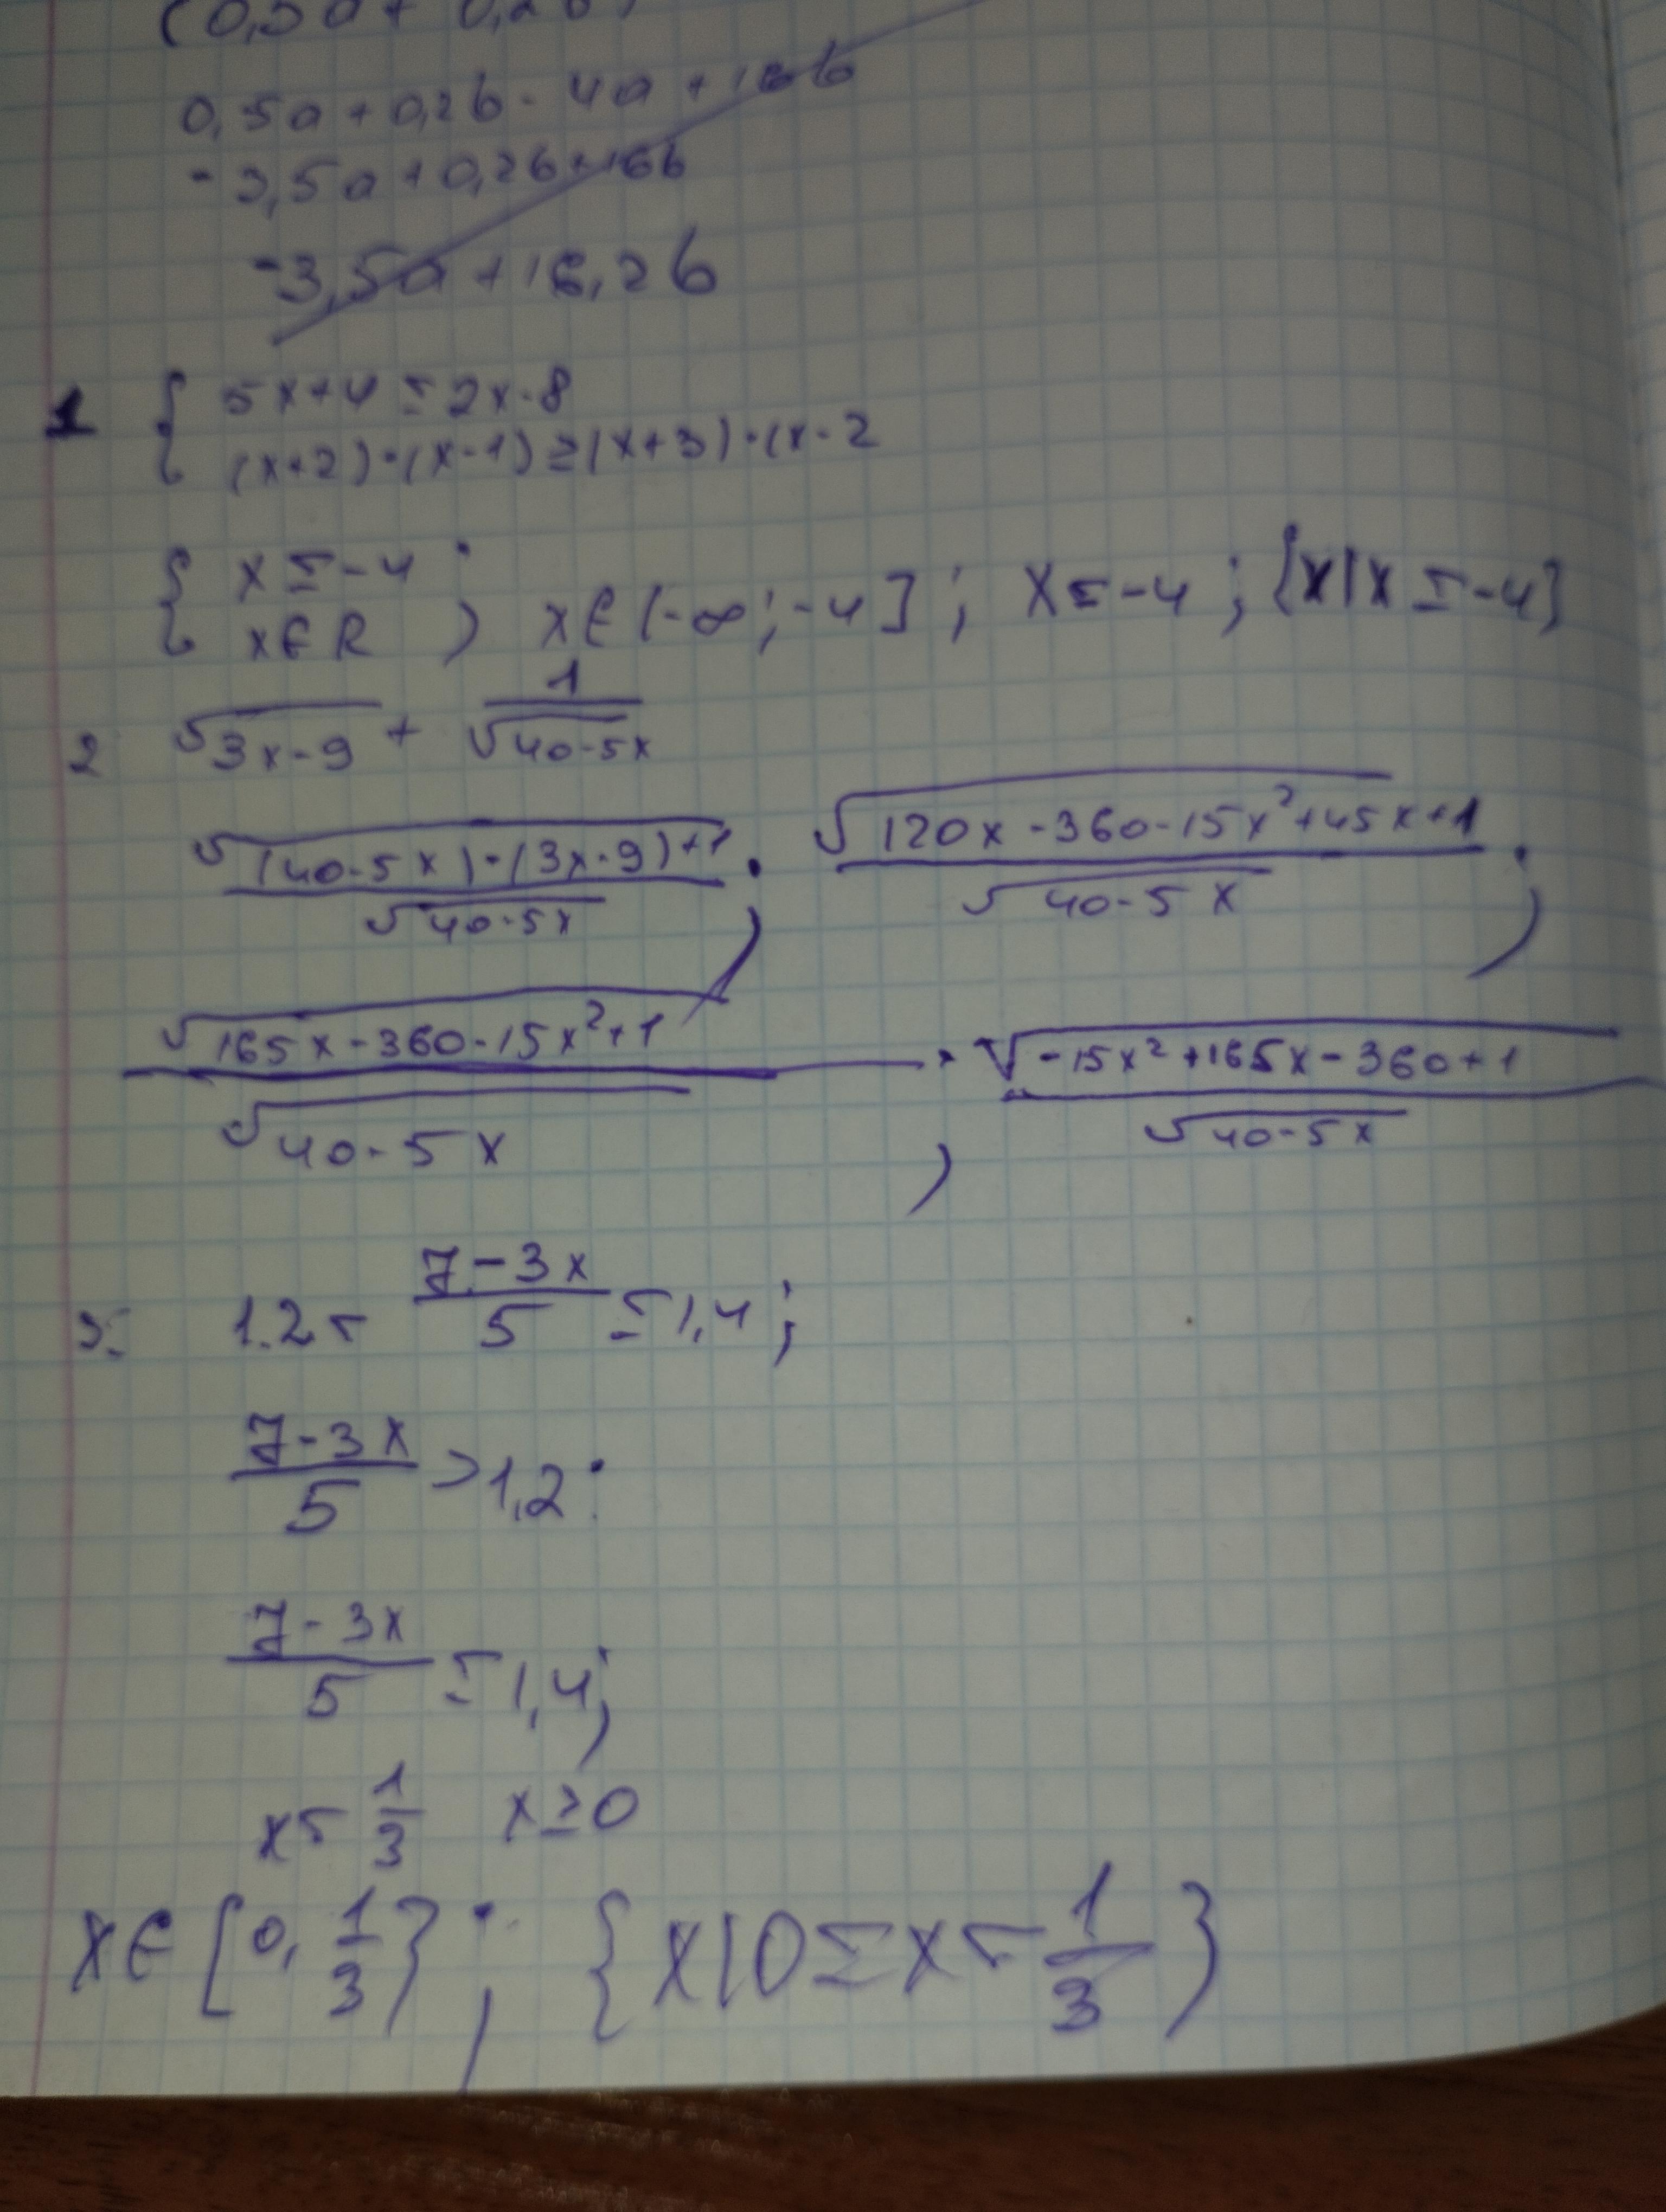 (0,5a + 0,2b)
0,5a + 0,2b - 4a + 16b
-3,5a + 0,2b + 16b
-3,5a + 16,2b
1 { 5x+4 ≤ 2x-8
(x+2)·(x-1) ≥ (x+3)·(x-2
{ x ≤ -4
x∈R ; x∈(-∞; -4]; x ≤ -4; {x|x ≤ -4}
2 √(3x-9) + 1/√(40-5x)
√((40-5x)·(3x-9)+1)/√(40-5x) ; √(120x-360-15x²+45x+1)/√(40-5x) ;
√(165x-360-15x²+1)/√(40-5x) ; √(-15x²+165x-360+1)/√(40-5x)
3. 1.2 < (7-3x)/5 ≤ 1,4;
(7-3x)/5 > 1,2:
(7-3x)/5 ≤ 1,4;
x < 1/3 x ≥ 0
x∈[0, 1/3}; {x|0 ≤ x < 1/3}